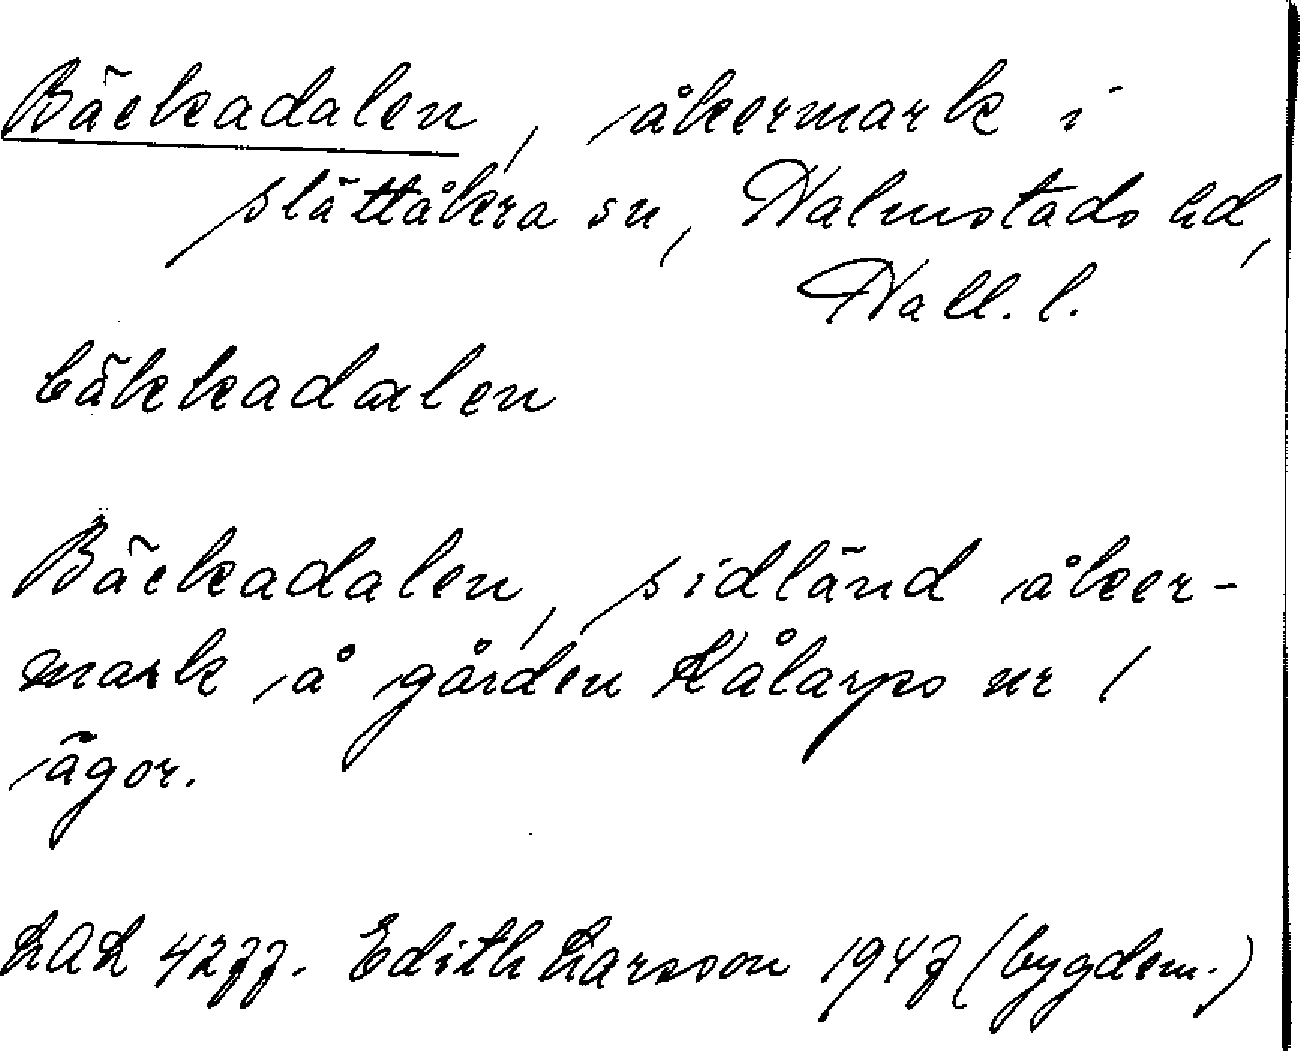 Bäckadalen, åkermark i
Slättåkra sn, Halmstads hd,
Hall. l.
bäkkadalen
Bäckadalen, sidländ åker-
mark å gården Kålarps nr 1
ägor.
LAL 4277. Edith Larsson 1947 (bygdem.)